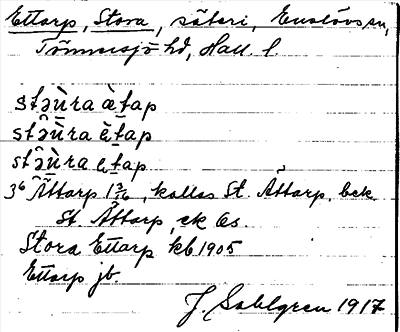 Ettarp, Stora, säteri, Enslövs sn,
Tönnersjö hd, Hall. l.
stəùra ètap
stə̂ùra ètap
stə̂ùra etap
3⁶ Åttarp 1 3/6, kallas St. Åttarp, bek
St. Åttarp, ek ös.
Stora Ettarp kb 1905
Ettarp jb.
J. Sahlgren 1917